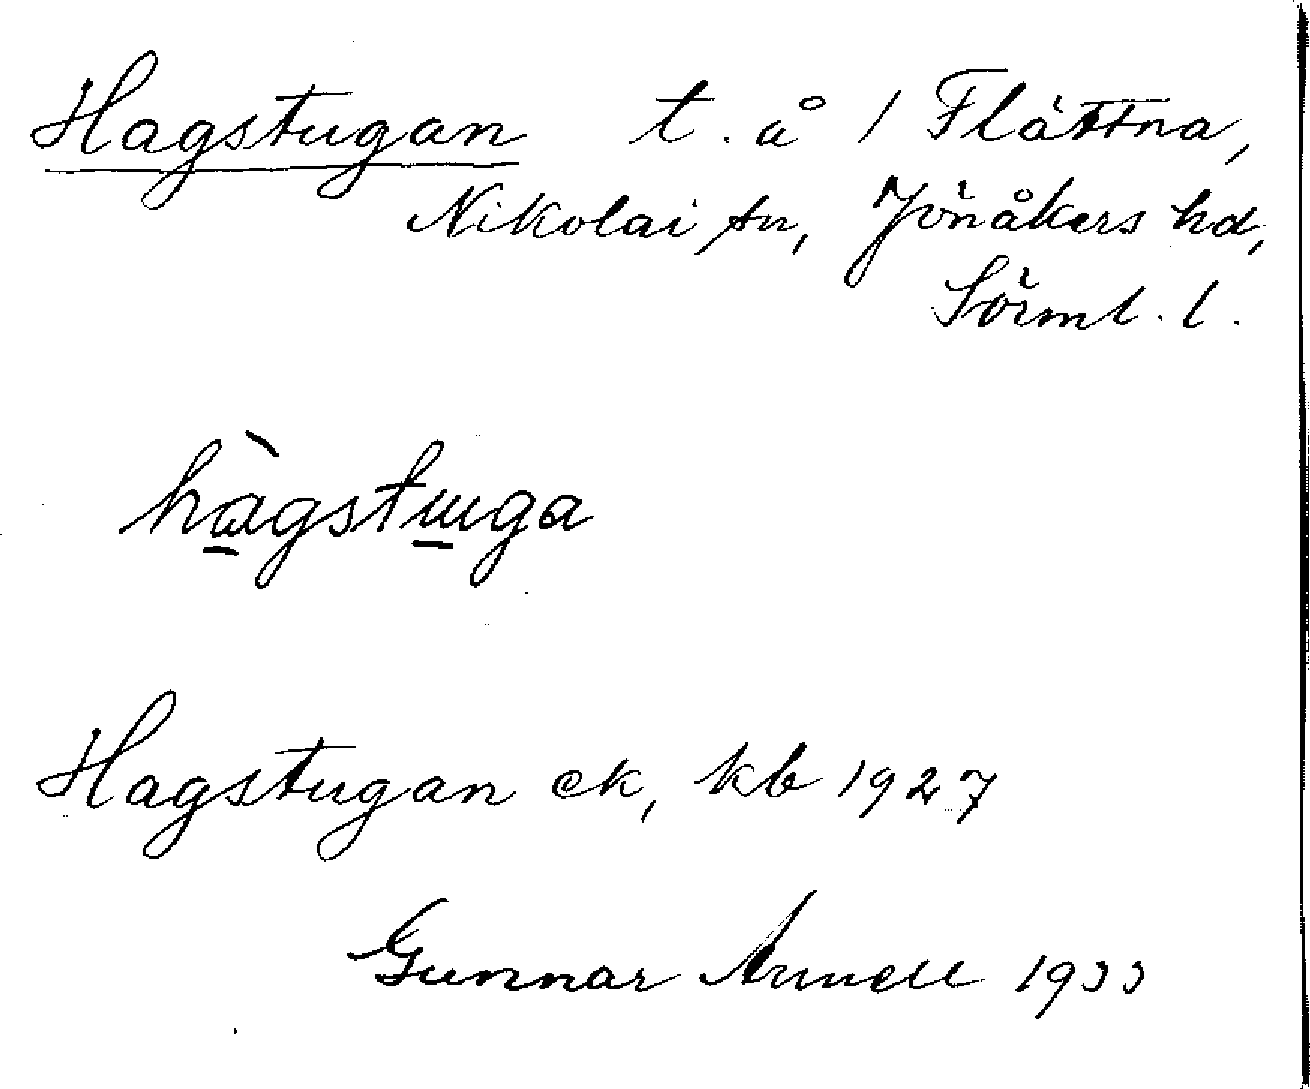 Hagstugan t. å 1 Flättna,
Nikolai sn, Jönåkers hd,
Sörml. l.
hàgstuga
Hagstugan ek, kb 1927
Gunnar Annell 1933